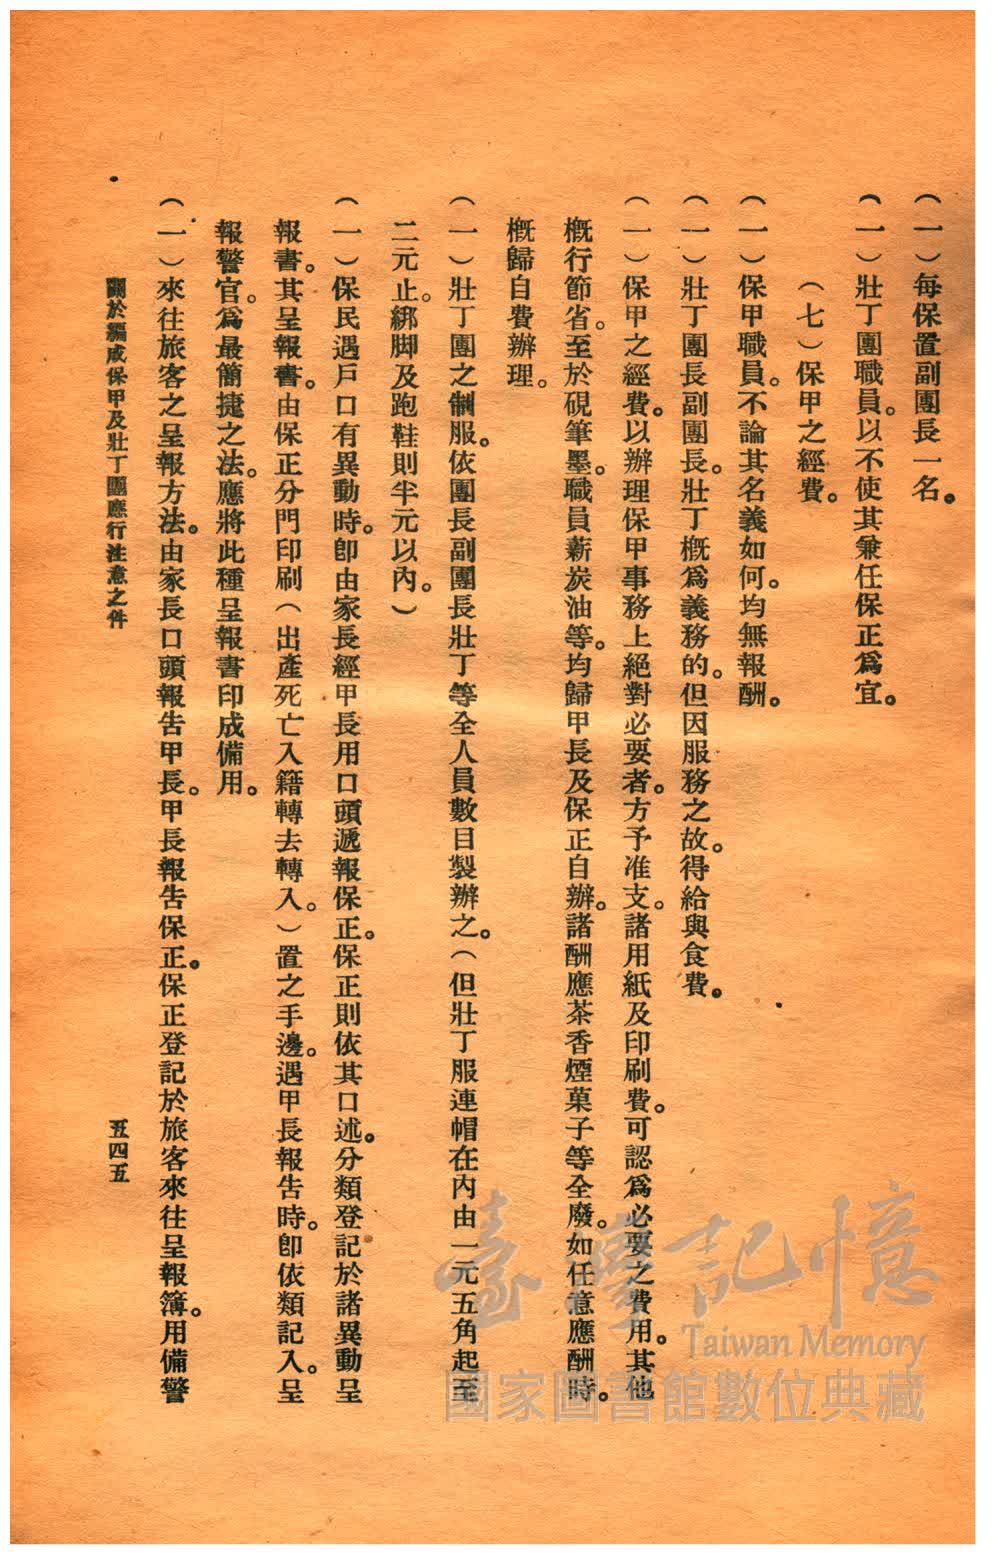 (一)每保置副團長一名。
(一)壯丁團職員。以不使其兼任保正爲宜。
(七)保甲之經費。
(一)保甲職員。不論其名義如何。均無報酬。
(一)壯丁團長副團長。壯丁概爲義務的。但因服務之故。得給與食費。
(一)保甲之經費。以辦理保甲事務上絕對必要者。方予准支。諸用紙及印刷費。可認爲必要之費用。其他
概行節省。至於硯筆墨。職員薪炭油等。均歸甲長及保正自辦。諸酬應茶香煙菓子等全廢。如任意應酬時。
概歸自費辦理。
(一)壯丁團之制服。依團長副團長壯丁等全人員數目製辦之。(但壯丁服連帽在內由一元五角起至
二元止。綁脚及跑鞋則半元以內。)
(一)保民遇戶口有異動時。卽由家長經甲長用口頭遞報保正。保正則依其口述。分類登記於諸異動呈
報書。其呈報書。由保正分門印刷(出產死亡入籍轉去轉入。)置之手邊。遇甲長報告時。卽依類記入。呈
報警官。爲最簡捷之法。應將此種呈報書印成備用。
(一)來往旅客之呈報方法。由家長口頭報告甲長。甲長報告保正。保正登記於旅客來往呈報簿。用備警
關於編成保甲及壯丁團應行注意之件
五四五
臺灣記憶
Taiwan Memory
國家圖書館數位典藏